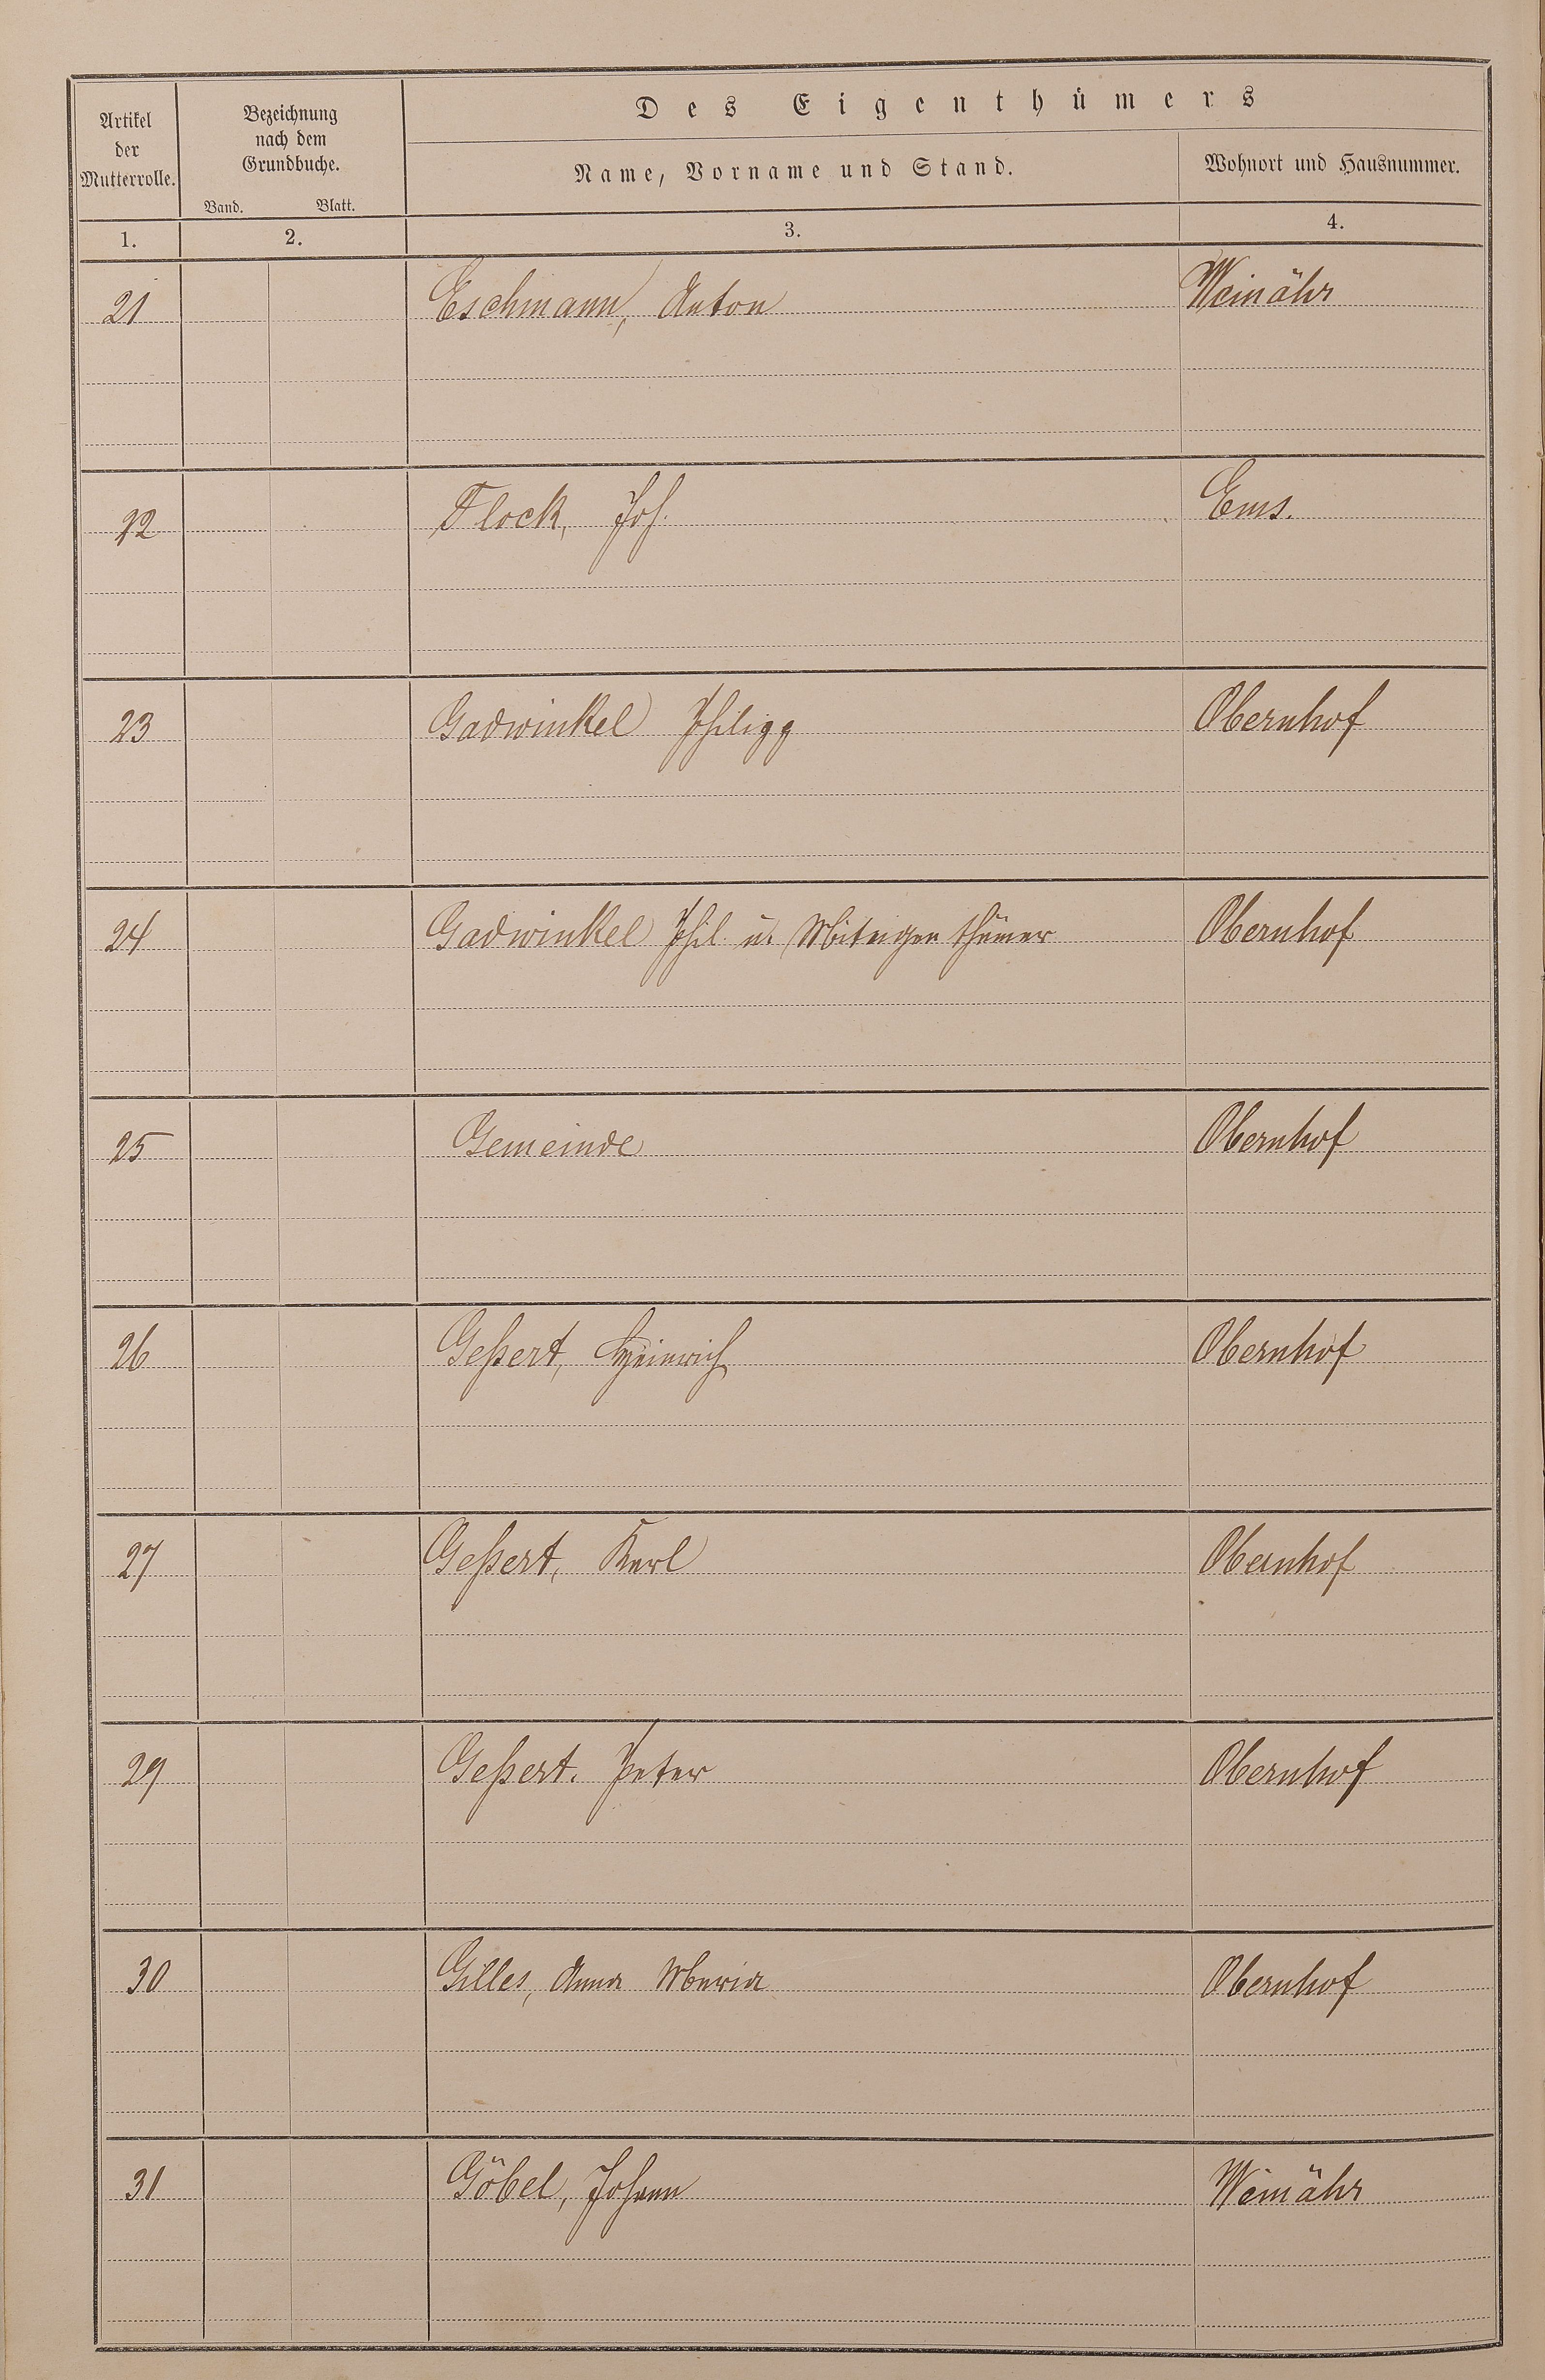 Artikel der Mutterrolle.
Bezeichnung nach dem Grundbuche.
Band. Blatt.
Des Eigenthümers
Name, Vorname und Stand.
Wohnort und Hausnummer.
1. 2. 3. 4.
21 Eschmann, Anton Weinähr
22 Flock, Joh. Ems.
23 Gadwinkel Philipp Obernhof
24 Gadwinkel Phil. u. Miteigenthümer Obernhof
25 Gemeinde Obernhof
26 Geßert, Heinrich Obernhof
27 Geßert, Karl Obernhof
29 Geßert. Peter Obernhof
30 Gilles, Anna Maria Obernhof
31 Göbel, Johann Weinähr